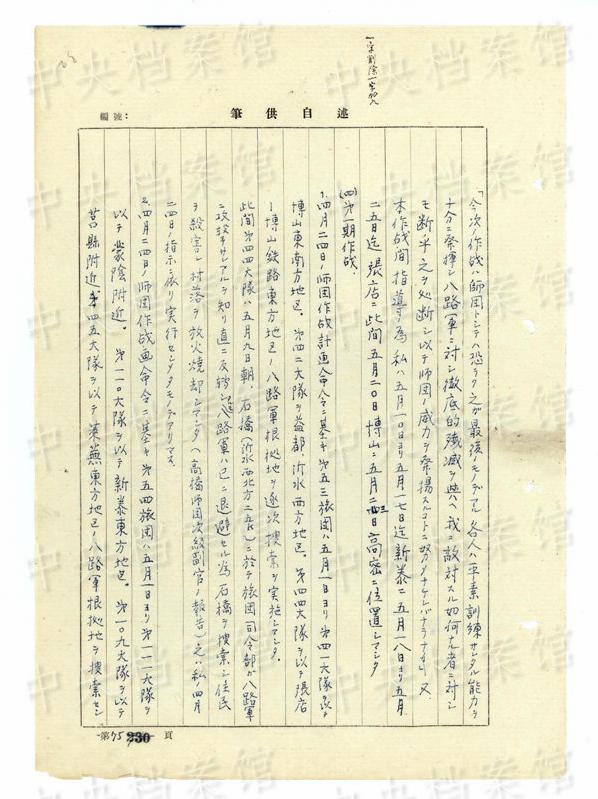 中央档案馆
一字削除一字加入
編號：
筆供自述
「今次ノ作戦ハ師団トシテハ恐ラク之が最後ノモノデアル 各人ハ平素訓練サレタル能力ヲ
十分ニ発揮シ八路軍ニ対シ徹底的殲滅ヲ与ヘ我ニ敵対スル如何ナル者ニ対シ
モ断乎之ヲ処断シ以テ師団ノ威力ヲ発揚スルコトニ努メナケレバナラナイ」又
本作戦間指導ノ為私ハ五月一〇日ヨリ五月一七日迄新泰ニ五月一八日ヨリ五月
二五日迄張店ニ此間五月二〇日博山ニ五月二三日高密ニ位置シマシタ
(四)第一期作戦、
1、四月二四日ノ師団作戦計画命令ニ基キ第五三旅団ハ五月一日ヨリ第四一大隊ヲ以テ
博山東南方地区。第四二大隊ヲ益都、沂水西方地区。第四四大隊ヲ以テ張店
ー博山鉄路東方地区ノ八路軍根拠地ヲ逐次捜索ヲ実施シマシタ。
此間第四四大隊ハ五月九日朝、石橋(沂水西北方二五粁)ニ於テ旅団司令部が八路軍
ニ攻撃サレアルヲ知リ直ニ反転シ八路軍ハ已ニ退避セル為石橋ヲ捜索シ住民
ヲ殺害シ村落ヲ放火焼却シマシタ(高橋師団次級副官ノ報告)之ハ私ノ四月
二四日ノ指示ニ依リ実行セシメタモノデアリマス
2、四月二四日ノ師団作戦命令ニ基キ第五四旅団ハ五月一日ヨリ第一一一大隊ヲ
以テ蒙陰附近。第一一〇大隊ヲ以テ新泰東方地区。第一〇九大隊ヲ以テ
莒縣附近第四五大隊ヲ以テ莱蕪東方地区ノ八路軍根拠地ヲ捜索セシ
第75 230 頁